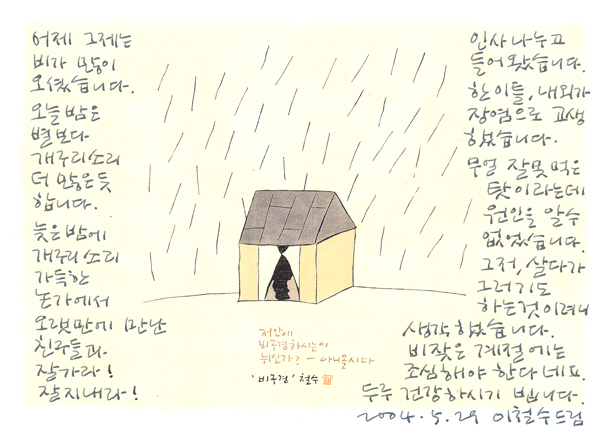 어제 그제는
비가 많이
오셨습니다.
오늘 밤은
별보다
개구리소리
더 많은 듯
합니다.
늦은 밤에
개구리 소리
가득한
논가에서
오랫만에 만난
친구들과
잘가라!
잘지내라!
인사나누고
들어왔습니다.
한 이틀, 내외가
장염으로 고생
했습니다.
무얼 잘못 먹은
탓이라는데
원인을 알 수
없었습니다.
그저, 살다가
그러기도
하는것이려니
생각했습니다.
비잦은 계절에는
조심해야 한다네요.
두루 건강하시기 빕니다.
2004. 5. 29 이철수드림
저 안에
비구경하시는이
뉘신가? – 아니올시다
'비구경' 철수